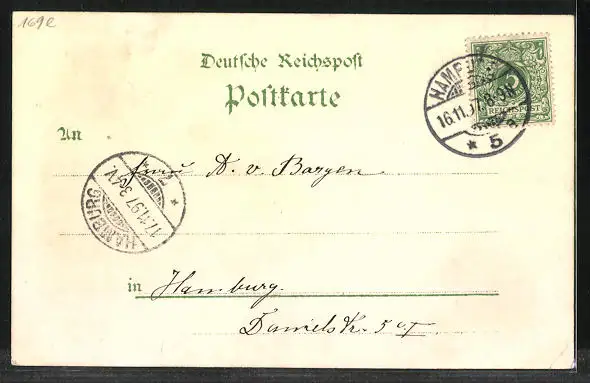 169e
Deutsche Reichspost
Postkarte
HAMBURG
16.11.97. 8-9N
* 5
5
REICHSPOST
An
Frau A. v. Bargen.
HAMBURG
17.11.97
in Hamburg.
Danielstr. 5